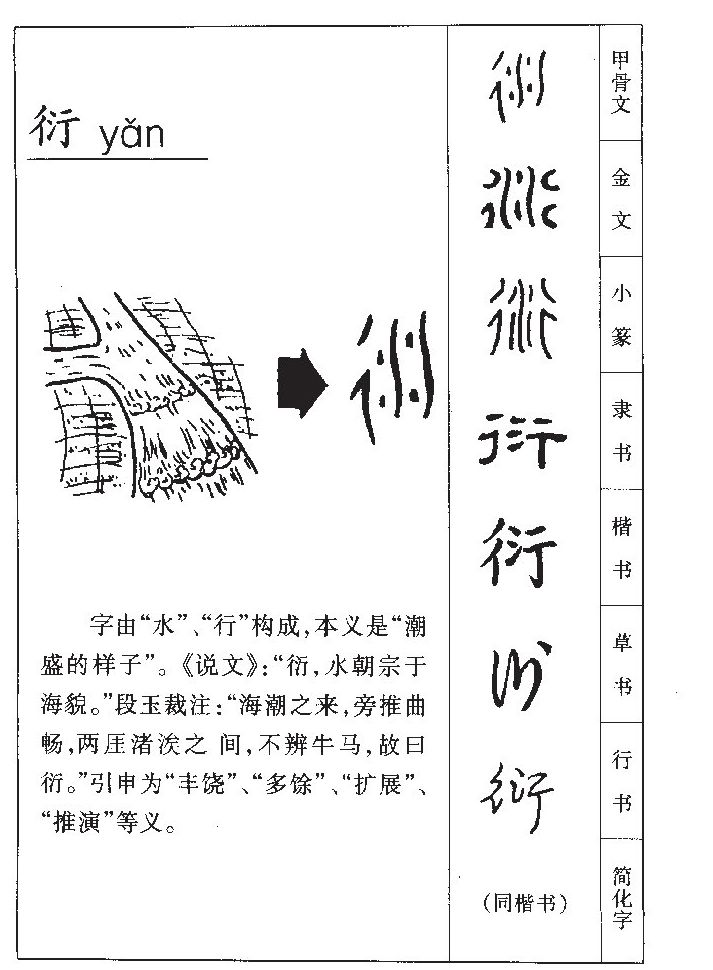 衍 yǎn
字由“水”、“行”构成,本义是“潮
盛的样子”。《说文》:“衍,水朝宗于
海貌。”段玉裁注:“海潮之来,旁推曲
畅,两厓渚涘之 间,不辨牛马,故曰
衍。”引申为“丰饶”、“多馀”、“扩展”、
“推演”等义。
衍 甲骨文
衍 金文
衍 小篆
衍 隶书
衍 楷书
衍 草书
衍 行书
(同楷书) 简化字